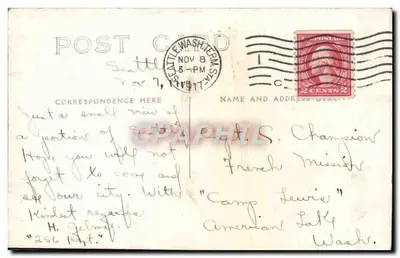 POST CARD
SEATTLE, WASH. TERM. STA.
NOV 8
3-PM
1917
Seattle
Nov 7,
CORRESPONDENCE HERE
NAME AND ADDRESS
Just a small view of
a portion of
Hope you will not
forget to come and
see your city. With
Kindest regards
H.
"286
S. Champion
French Mission
"Camp Lewis"
Amerian Lake
Wash.
2 CENTS 2